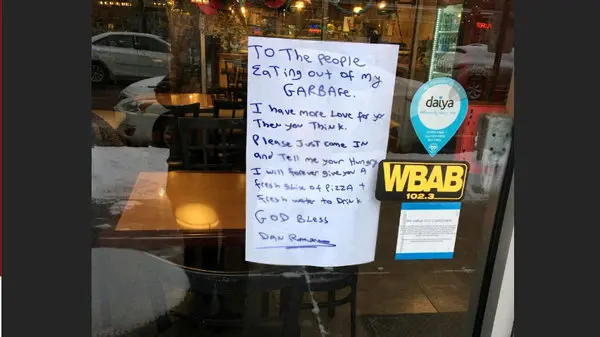 TO THE PEOPLE
EATING OUT OF MY
GARBAGE.
I HAVE MORE LOVE FOR YOU
THEN YOU THINK.
PLEASE JUST COME IN
AND TELL ME YOUR HUNGRY
I WILL FOREVER GIVE YOU A
FRESH SLICE OF PIZZA +
FRESH WATER TO DRINK
GOD BLESS
DAN
daiya
WBAB
102.3